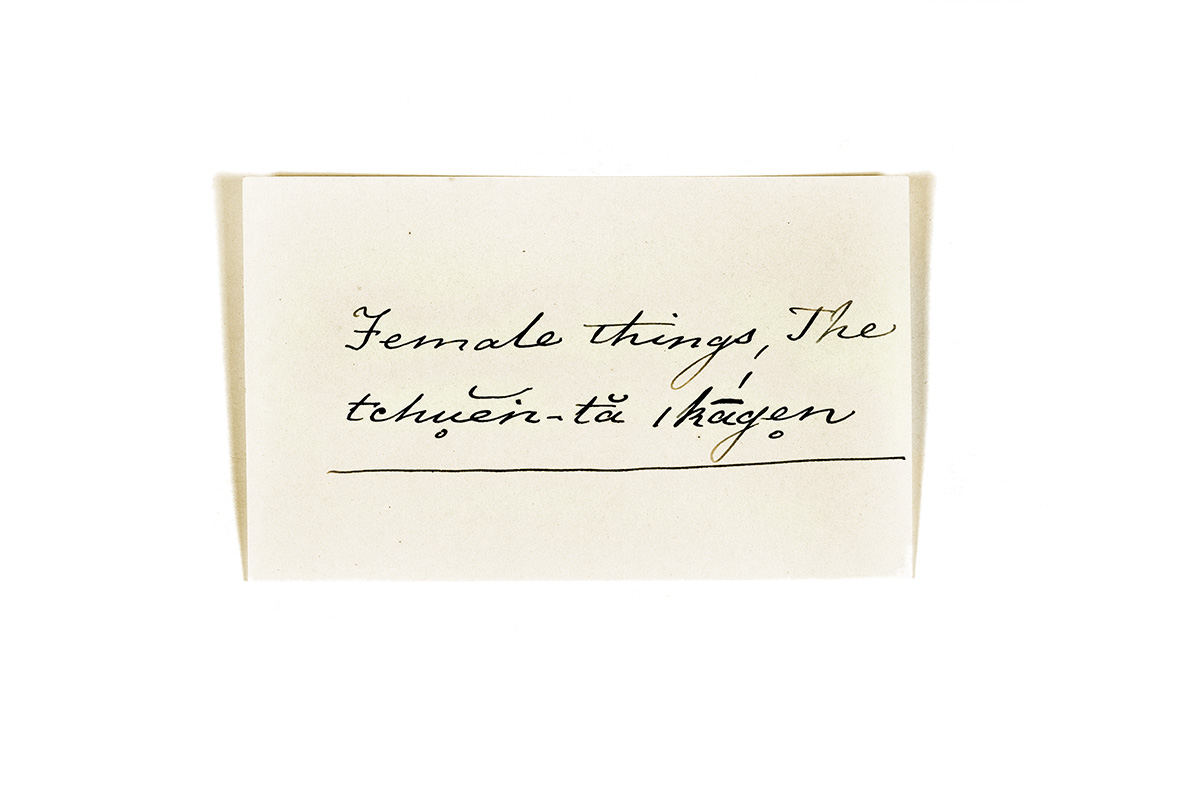 Female things, The
tchu̥ĕn-tă ıkā́ge̥n